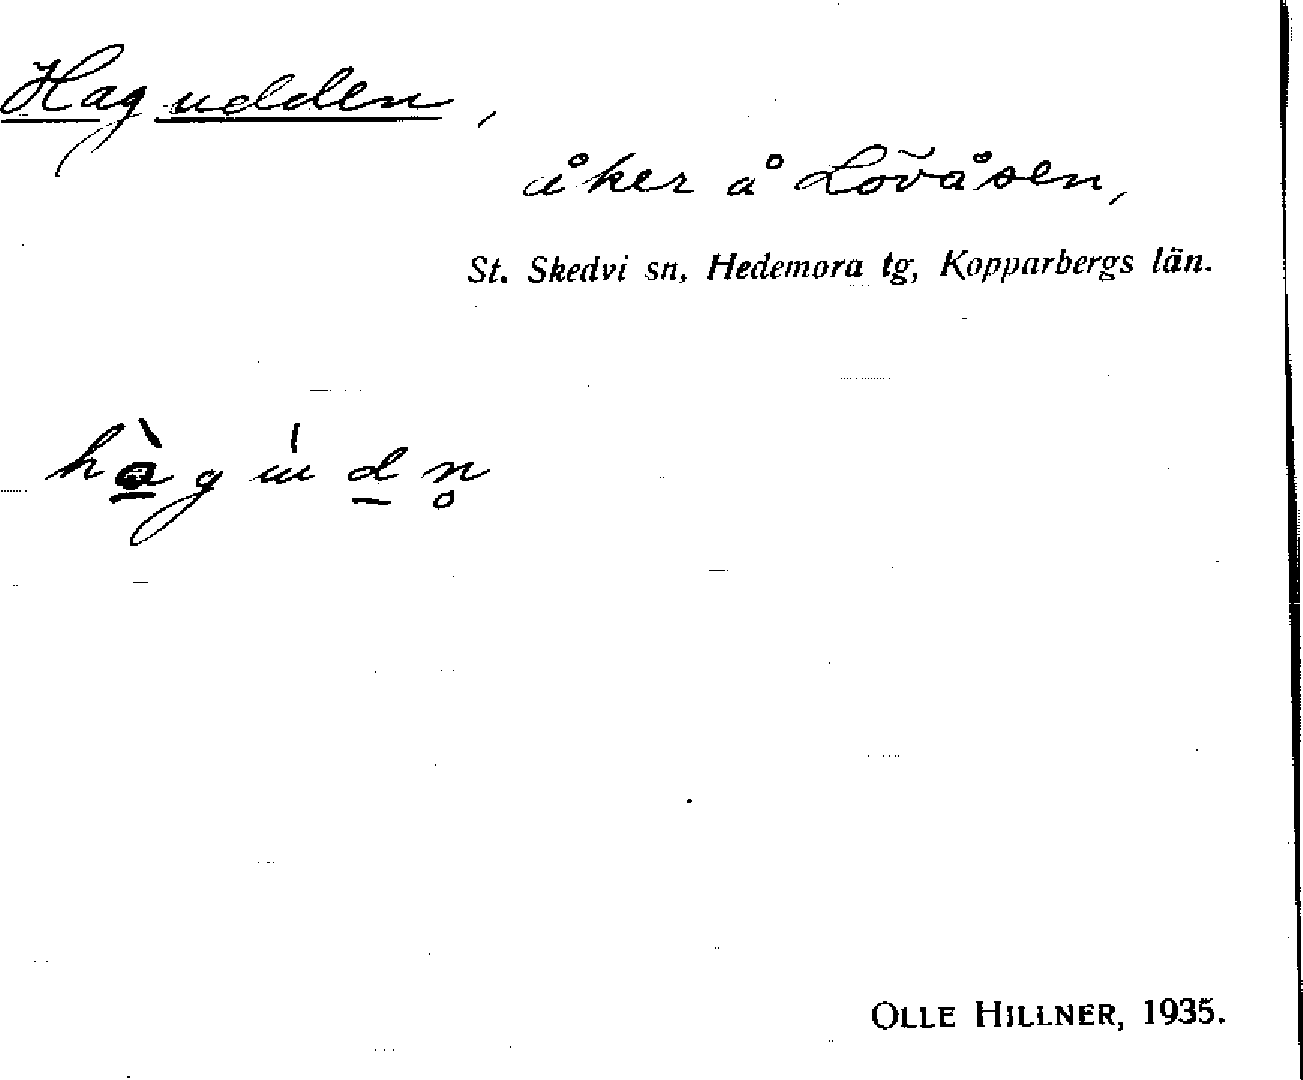 Hagudden,
åker å Lövåsen,
St. Skedvi sn, Hedemora tg, Kopparbergs län.
OLLE HILLNER, 1935.